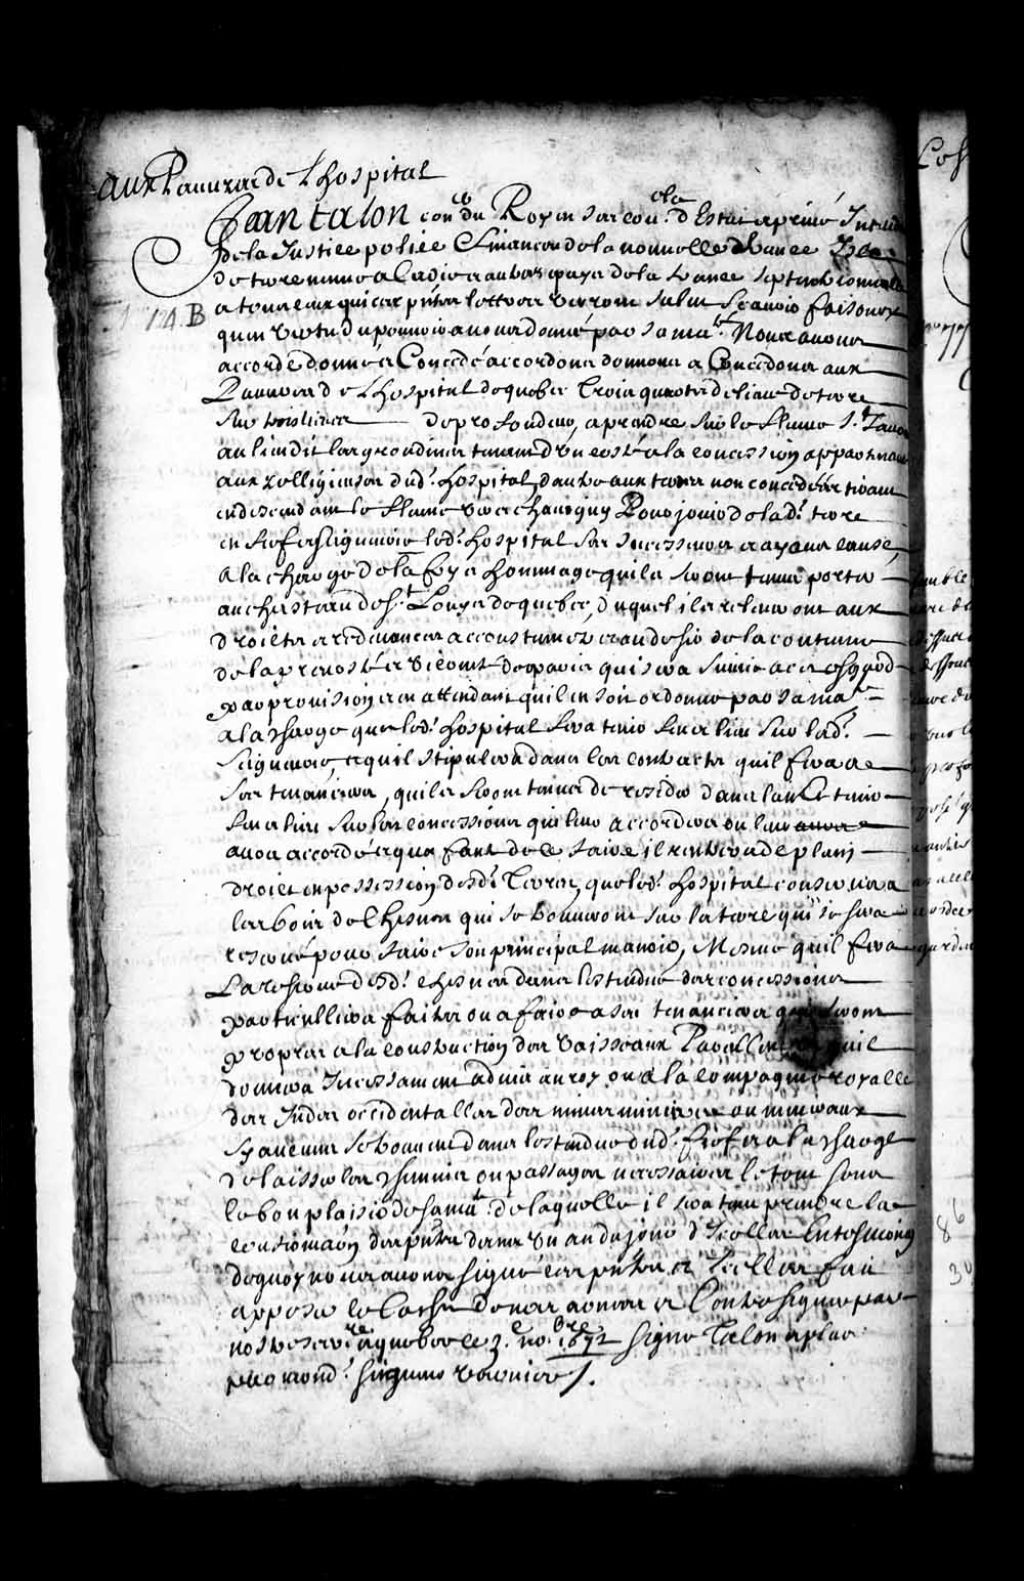 Aux Pauures de L'hospital
Jean talon con.er du Roy en ses con.ls d'Estat et priué Intend
de la Justice police et finances de la nouuelle france Isle
de terre neuue a Cadie et autres pays de la france septentrionnalle
a tous ceux qui ces pntes lettres verront salut scauoir faisons
14.B
quen vertu du pouuoir a nous donné par sa ma.té Nous auons
accordé donné et Concedé accordons donnons et Concedons aux
Pauures de L'hospital de quebec Trois quarts de lieue de terre
sur trois lieues de profondeur, a prendre sur le fleuue S.t
au lieu dit les grondines tenant d'un costé a la concession appartenant
aux relligieuses dud. hospital, dautre aux terres non concedées tirant
en descendant le fleuue vers chauigny Pour jouir de lad. terre
en fief et seigneurie led. hospital ses successeurs et ayans cause,
a la charge de la foy et hommage quils seront tenus porter
au chasteau de S.t Louys de quebec, duquel ils releueront aux
droicts et redeuances accoustumez et au desir de la coutume
de la preuosté et vicomté de paris qui sera suiuie a cet esgard
par prouision et en attendant quil en soit ordonné par sa ma.té
a la charge que led. hospital sera tenu feu et lieu sur lad.
seigneurie, et quil stipulera dans les contracts quil fera a
ses tenanciers, quils seront tenus de resider dans lan et tenir
feu et lieu sur les concessions quil leur accordera ou leur
aura accordé et qua faute de ce faire il rentrera de plain
droict en possession desd. Terres, que led. hospital conseruera
les bois de Chesnes qui se trouueront sur la terre quil se sera
reserué pour faire son principal manoir, Mesme quil fera
La reserue desd. chesnes dans lestendue des concessions
particullieres faites ou a faire a ses tenanciers qui seront
propres a la construction des vaisseaux Pareillement quil
donnera Incessament aduis au roy ou a la compagnie royalle
des Indes occidentalles des mines minieres ou mineraux
sy aucuns se trouuent dans lestendue dud. fief et a la charge
de laisser les chemins ou passages necessaires le tout sous
le bon plaisir de sa ma.té de laquelle il sera tenu prendre la
confirmaon des pntes dans un an du jour d'Icelles En tesmoing
dequoy nous auons signé ces pntes et a Icelles fait
apposer le Cachet de nos armes et Contresigner par
nostre secre.re a quebec le 3.e no.bre 1672 signé Talon et plus
par mond. seigneur varnier /.
77
86